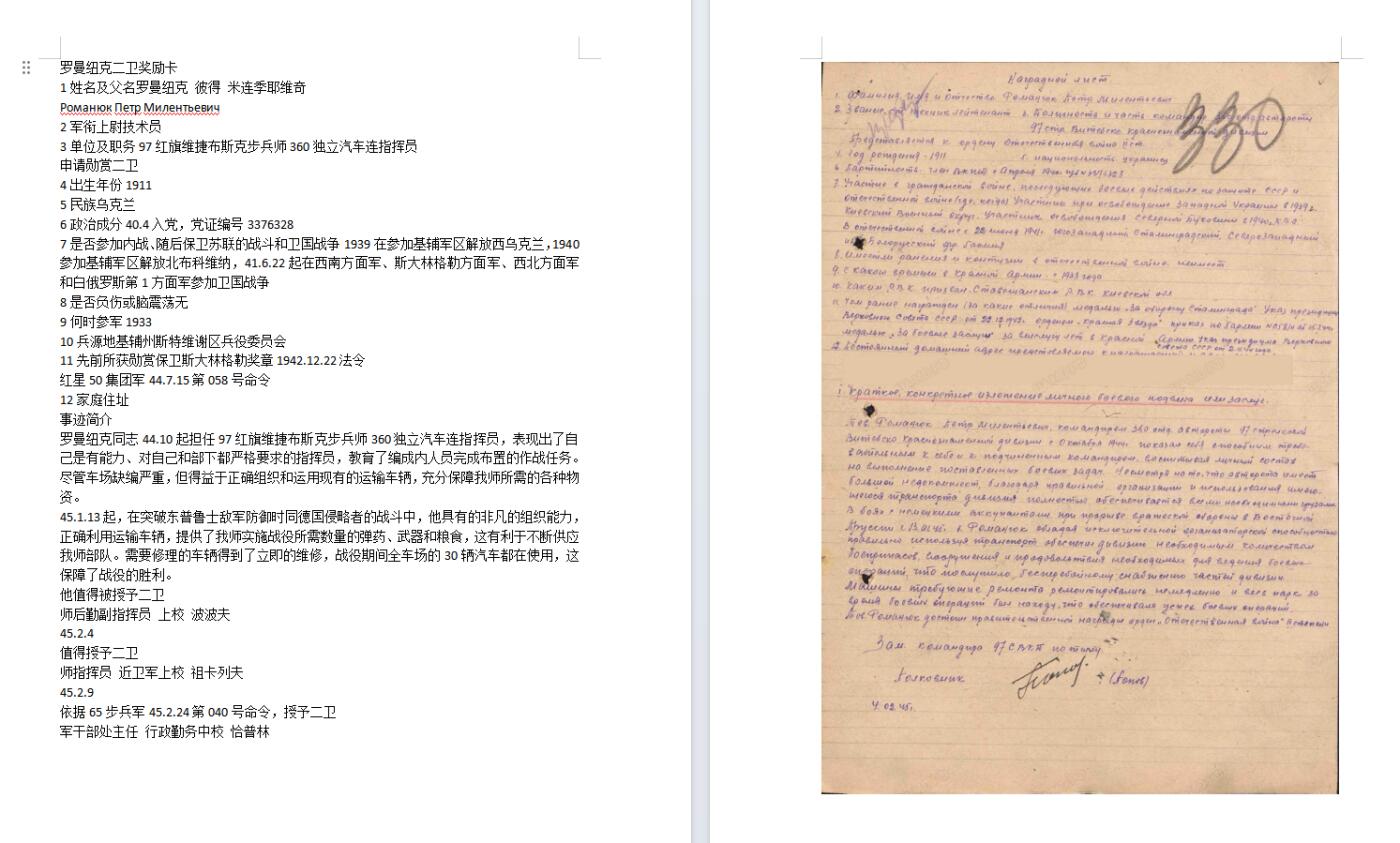 罗曼纽克二卫奖励卡
1 姓名及父名罗曼纽克 彼得 米连季耶维奇
Романюк Петр Милентьевич
2 军衔上尉技术员
3 单位及职务 97 红旗维捷布斯克步兵师 360 独立汽车连指挥员
申请勋赏二卫
4 出生年份 1911
5 民族乌克兰
6 政治成分 40.4 入党，党证编号 3376328
7 是否参加内战、随后保卫苏联的战斗和卫国战争 1939 在参加基辅军区解放西乌克兰，1940
参加基辅军区解放北布科维纳，41.6.22 起在西南方面军、斯大林格勒方面军、西北方面军
和白俄罗斯第 1 方面军参加卫国战争
8 是否负伤或脑震荡无
9 何时参军 1933
10 兵源地基辅州斯特维谢区兵役委员会
11 先前所获勋赏保卫斯大林格勒奖章 1942.12.22 法令
红星 50 集团军 44.7.15 第 058 号命令
12 家庭住址
事迹简介
罗曼纽克同志 44.10 起担任 97 红旗维捷布斯克步兵师 360 独立汽车连指挥员，表现出了自
己是有能力、对自己和部下都严格要求的指挥员，教育了编成内人员完成布置的作战任务。
尽管车场缺编严重，但得益于正确组织和运用现有的运输车辆，充分保障我师所需的各种物
资。
45.1.13 起，在突破东普鲁士敌军防御时同德国侵略者的战斗中，他具有的非凡的组织能力，
正确利用运输车辆，提供了我师实施战役所需数量的弹药、武器和粮食，这有利于不断供应
我师部队。需要修理的车辆得到了立即的维修，战役期间全车场的 30 辆汽车都在使用，这
保障了战役的胜利。
他值得被授予二卫
师后勤副指挥员 上校 波波夫
45.2.4
值得授予二卫
师指挥员 近卫军上校 祖卡列夫
45.2.9
依据 65 步兵军 45.2.24 第 040 号命令，授予二卫
军干部处主任 行政勤务中校 恰普林
Наградной лист
1. Фамилия, имя и отчество Романюк Петр Милентьевич
97 стр. Витебско краснознаменной дивизии
Представляется к ордену Отечественная война
4. Год рождения - 1911 5. национальность украинец
7. Участие в гражданской войне, последующие боевые действиях по защите СССР и
отечественной войне (где, когда) Участник при освобождении Западной Украины в 1939 г.
Киевский Военный округ. Участник освобождения Северной Буковины в 1940 г.
В отечественной войне с 22 июня 1941. Югозападный, Сталинградский, Северозападный
Белорусский
8. Имеет ли ранения и контузии в отечественной войне. неимеет.
9. С какого времени в Красной Армии - с 1933 года
10. Каким РВК призван. Ставищанским РВК Киевской обл
11. Чем ранее награжден (за какие отличия) медалью „За оборону Сталинграда" Указ президиума
Верховного Совета СССР от 22.12.1942. орденом „Красная Звезда" приказ
медалью „За боевые заслуги" за выслугу лет в Красной Армии
12. Постоянный домашний адрес представляемого к награждению
1. Краткое, конкретное изложение личного боевого подвига или заслуг.
Тов. Романюк Петр Милентьевич, командиром 360 отд. автороты 97 стрелковой
Витебско Краснознаменной дивизии с Октября 1944. показал себя способным требо-
вательным к себе и к подчиненным командиром, воспитывая личный состав
на выполнение поставленных боевых задач. Несмотря на то, что авторота имеет
большой недокомплект, благодаря правильной организации и использования имею-
щегося транспорта дивизия полностью обеспечивается всеми необходимыми грузами.
В боях с немецкими оккупантами при прорыве вражеской обороны в Восточной
Пруссии с 13.01.45. т. Романюк обладая исключительной организаторской способностью
правильно используя транспорт обеспечил дивизию необходимым количеством
боеприпасов, вооружения и продовольствия необходимых для ведения боевых
операций, что послужило, бесперебойному снабжению частей дивизии.
Машины требующие ремонта ремонтировались немедленно и весь парк за
время боевых операций был находу, что обеспечивало успех боевых операций.
Тов. Романюк достоин правительственной награды орден „Отечественная война"
Зам. командира 97 СВКД по тылу
Полковник (Попов)
4.02.45г.
330